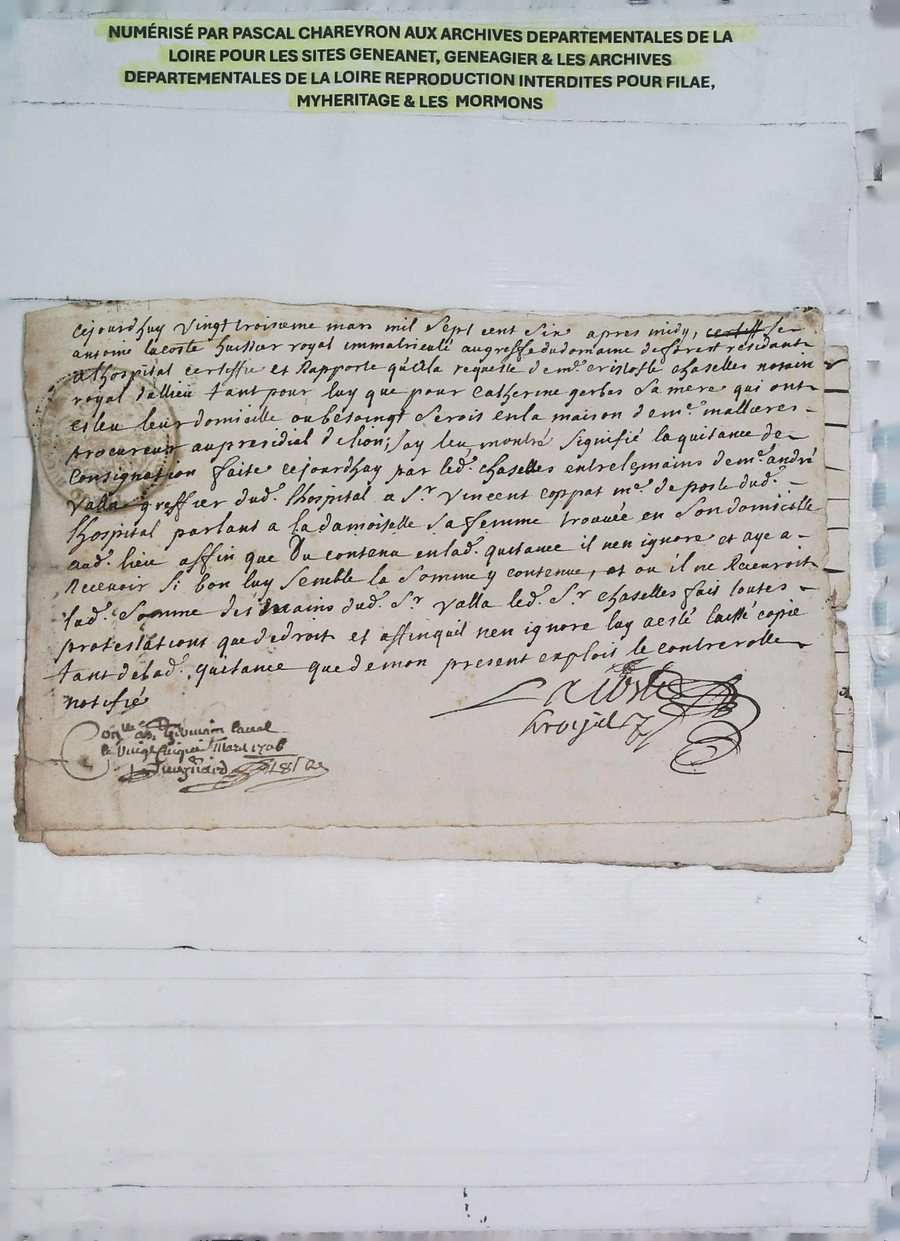 NUMÉRISÉ PAR PASCAL CHAREYRON AUX ARCHIVES DEPARTEMENTALES DE LA
LOIRE POUR LES SITES GENEANET, GENEAGIER & LES ARCHIVES
DEPARTEMENTALES DE LA LOIRE REPRODUCTION INTERDITES POUR FILAE,
MYHERITAGE & LES MORMONS
cejourdhuy vingt troisieme mars mil sept cent six apres midy, certiff je
antoine lacoste huissier royal immatriculé au greffe du domaine de forest residant
a lhospital certeffie et Rapporte qu'a la requeste de me. cristofle chaselles notaire
royal dallieu tant pour luy que pour Catherine gerbes sa mere qui ont
esleu leur domicille en la maison de me. mallieres
procureur au presidial de lion, jay leu, montré signifié la quitance de
Consignation faite cejourdhuy par led. chaselles entre les mains de me. andré
valla greffier dud. lhospital a Sr. vincent coppat me. de poste dud.
lhospital parlant a la damoiselle sa femme trouvée en son domicille
aud. lieu affin que Du contenu en lad. quitance il nen ignore et aye a
Recevoir si bon luy semble la somme y contenue, et ou il ne Recevroit
lad. somme des mains dud. Sr. valla led. Sr. chaselles fait toutes
protestations que de droit et affin quil nen ignore luy ay esté laissé copie
tant de lad. quitance que de mon present exploit le controrolle
notifié
Lacoste
h royal
onlle. a St. Germain laval
le vingt cinquie. Mars 1706